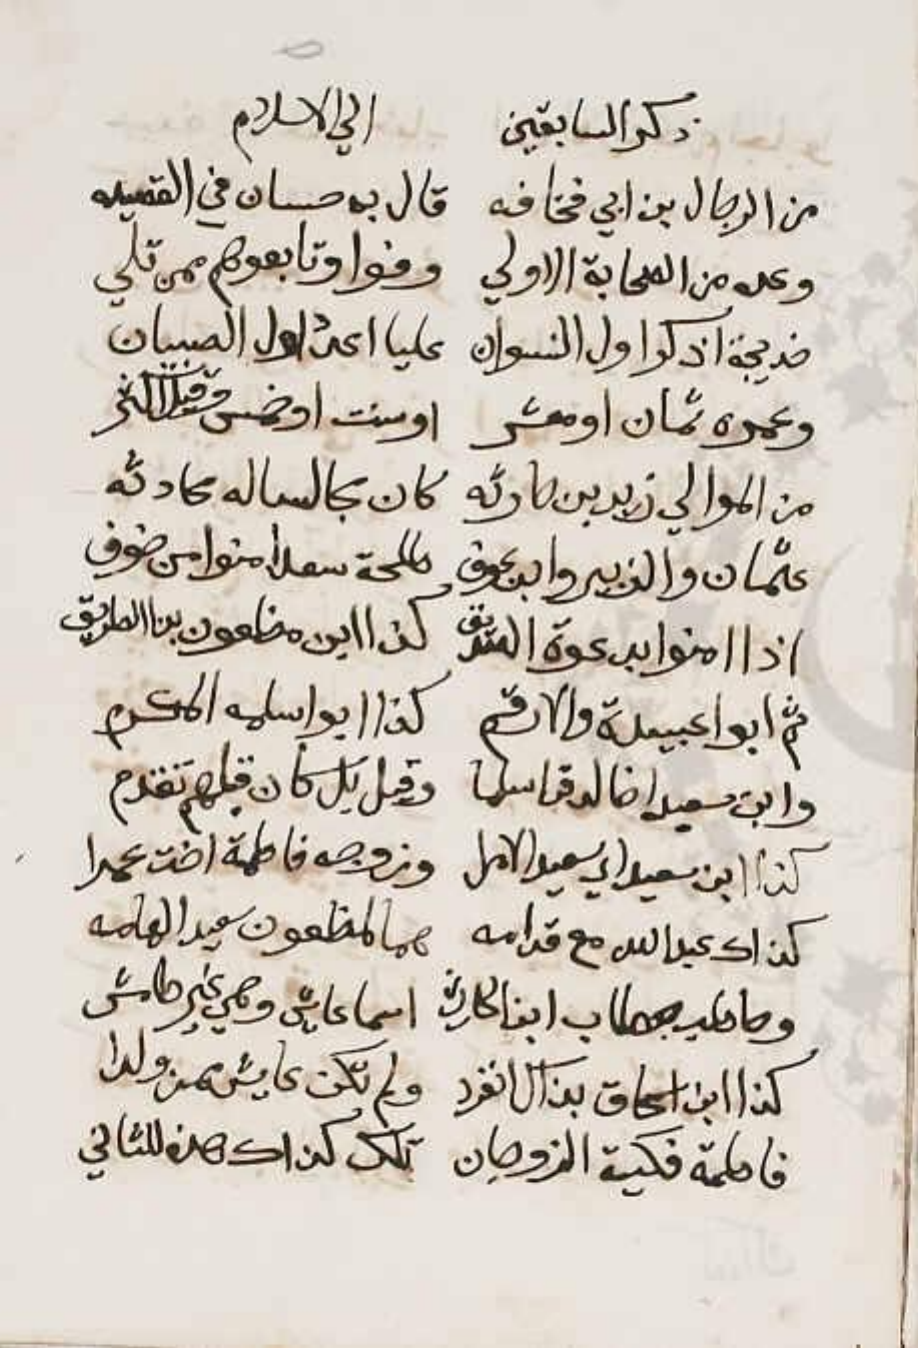 ذكر السابقين الي الاسلام
من الرجال بن ابي قحافه قال به حسان في القصيده
وعده من الصحابة الاولي وفنوا وتابعوهم ممن تلي
خديجة اذكر اول النسوان عليا اعدد اول الصبيان
وعمره ثمان او معشر او ست او خمس وقيل اكثر
من الموالي زيد بن حارثه كان مجالساله محادثه
عثمان والزبير وابن عوف طلحة سعدا امنوا من خوف
اذا امنوا بدعوة الصديق كذا ابن مظعون بذا الطريق
ثم ابوا عبيدة والارقم كذا ابوا سلمه المكرم
وابن سعيد اخالد قد اسلما وقيل بل كان قبلهم تقدم
كذا ابن سعيد اي سعيد الامل وزوجه فاطمة اخت عمرا
كذاك عبد الله مع قدامه هما لمظعون سعيد الهامه
وحاطب حطاب ابنا الحارث اسما عايش وهي غير طامش
كذا ابن اسحاق بذاك انفرد ولم تكن عايش ممن ولدا
فاطمة فكية الزوجان تلك كذاك هذه للثاني